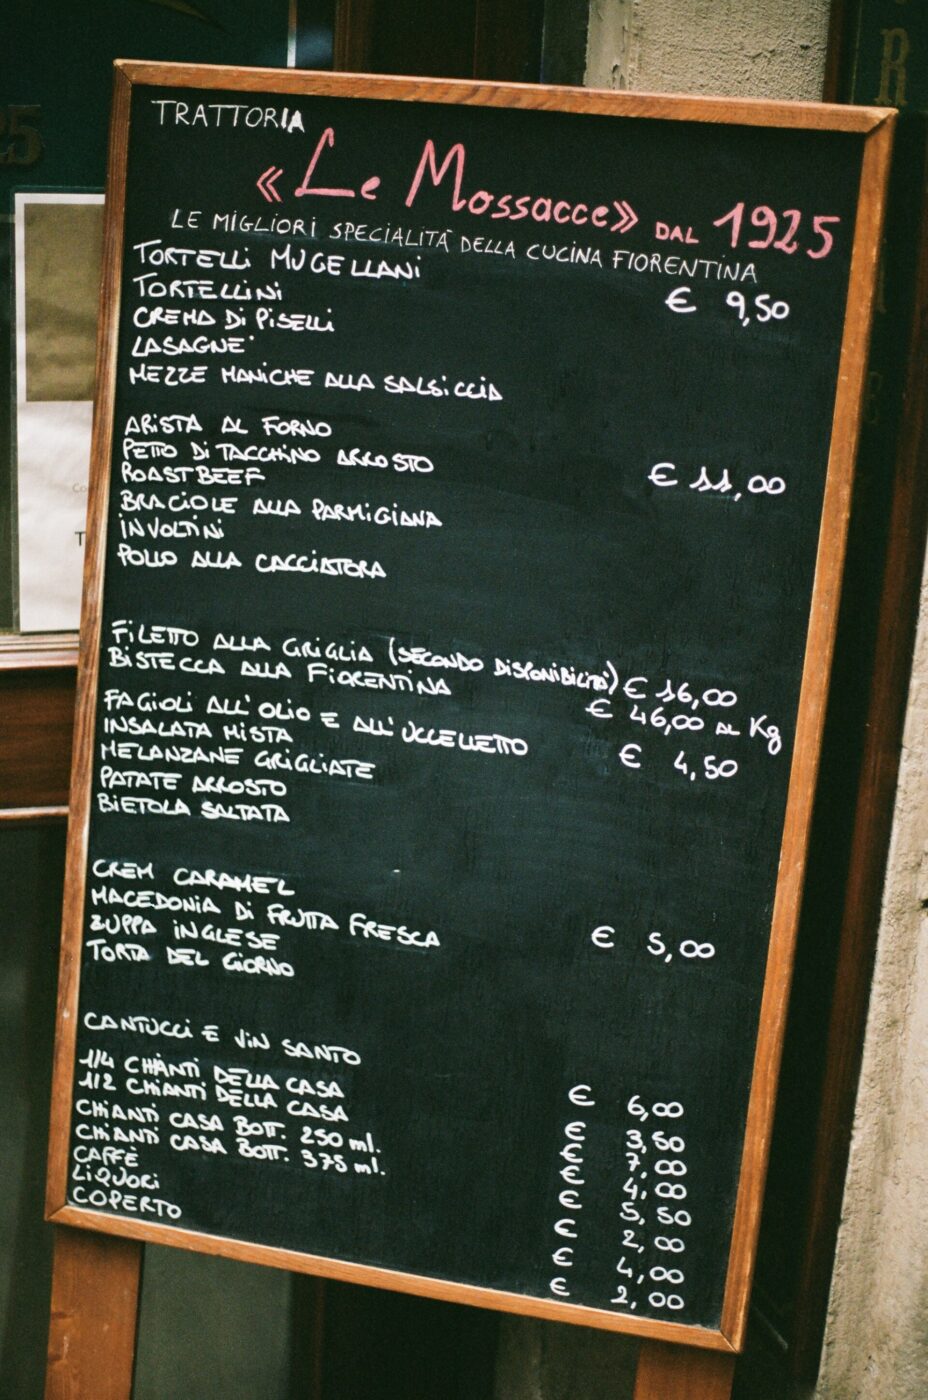 TRATTORIA
«Le Mossacce» DAL 1925
LE MIGLIORI SPECIALITÀ DELLA CUCINA FIORENTINA
TORTELLI MUGELLANI
TORTELLINI € 9,50
CREMA DI PISELLI
LASAGNE
MEZZE MANICHE ALLA SALSICCIA
ARISTA AL FORNO
PETTO DI TACCHINO ARROSTO
ROASTBEEF € 11,00
BRACIOLE ALLA PARMIGIANA
INVOLTINI
POLLO ALLA CACCIATORA
FILETTO ALLA GRIGLIA (SECONDO DISPONIBILITÀ) € 16,00
BISTECCA ALLA FIORENTINA € 46,00 AL Kg
FAGIOLI ALL'OLIO E ALL'UCCELLETTO € 4,50
INSALATA MISTA
MELANZANE GRIGLIATE
PATATE ARROSTO
BIETOLA SALTATA
CREM CARAMEL
MACEDONIA DI FRUTTA FRESCA € 5,00
ZUPPA INGLESE
TORTA DEL GIORNO
CANTUCCI E VIN SANTO € 6,00
1/4 CHIANTI DELLA CASA € 3,50
1/2 CHIANTI DELLA CASA € 7,00
CHIANTI CASA BOTT. 250 ml. € 4,00
CHIANTI CASA BOTT. 375 ml. € 5,50
CAFFÈ € 2,00
LIQUORI € 4,00
COPERTO € 2,00